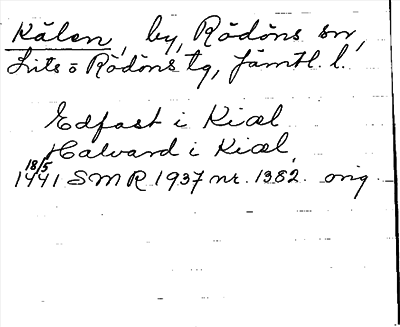 Kälen, by, Rödöns sn,
Lits o Rödöns tg, Jämtl. l.
Edfast i Kiæl
Halvard i Kiæl
18/5
1441 SMR 1937 nr. 1382. orig